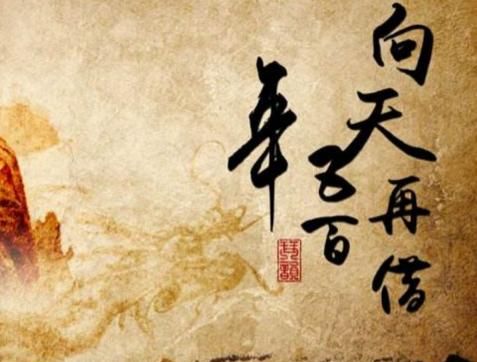 向天再借
五百
年